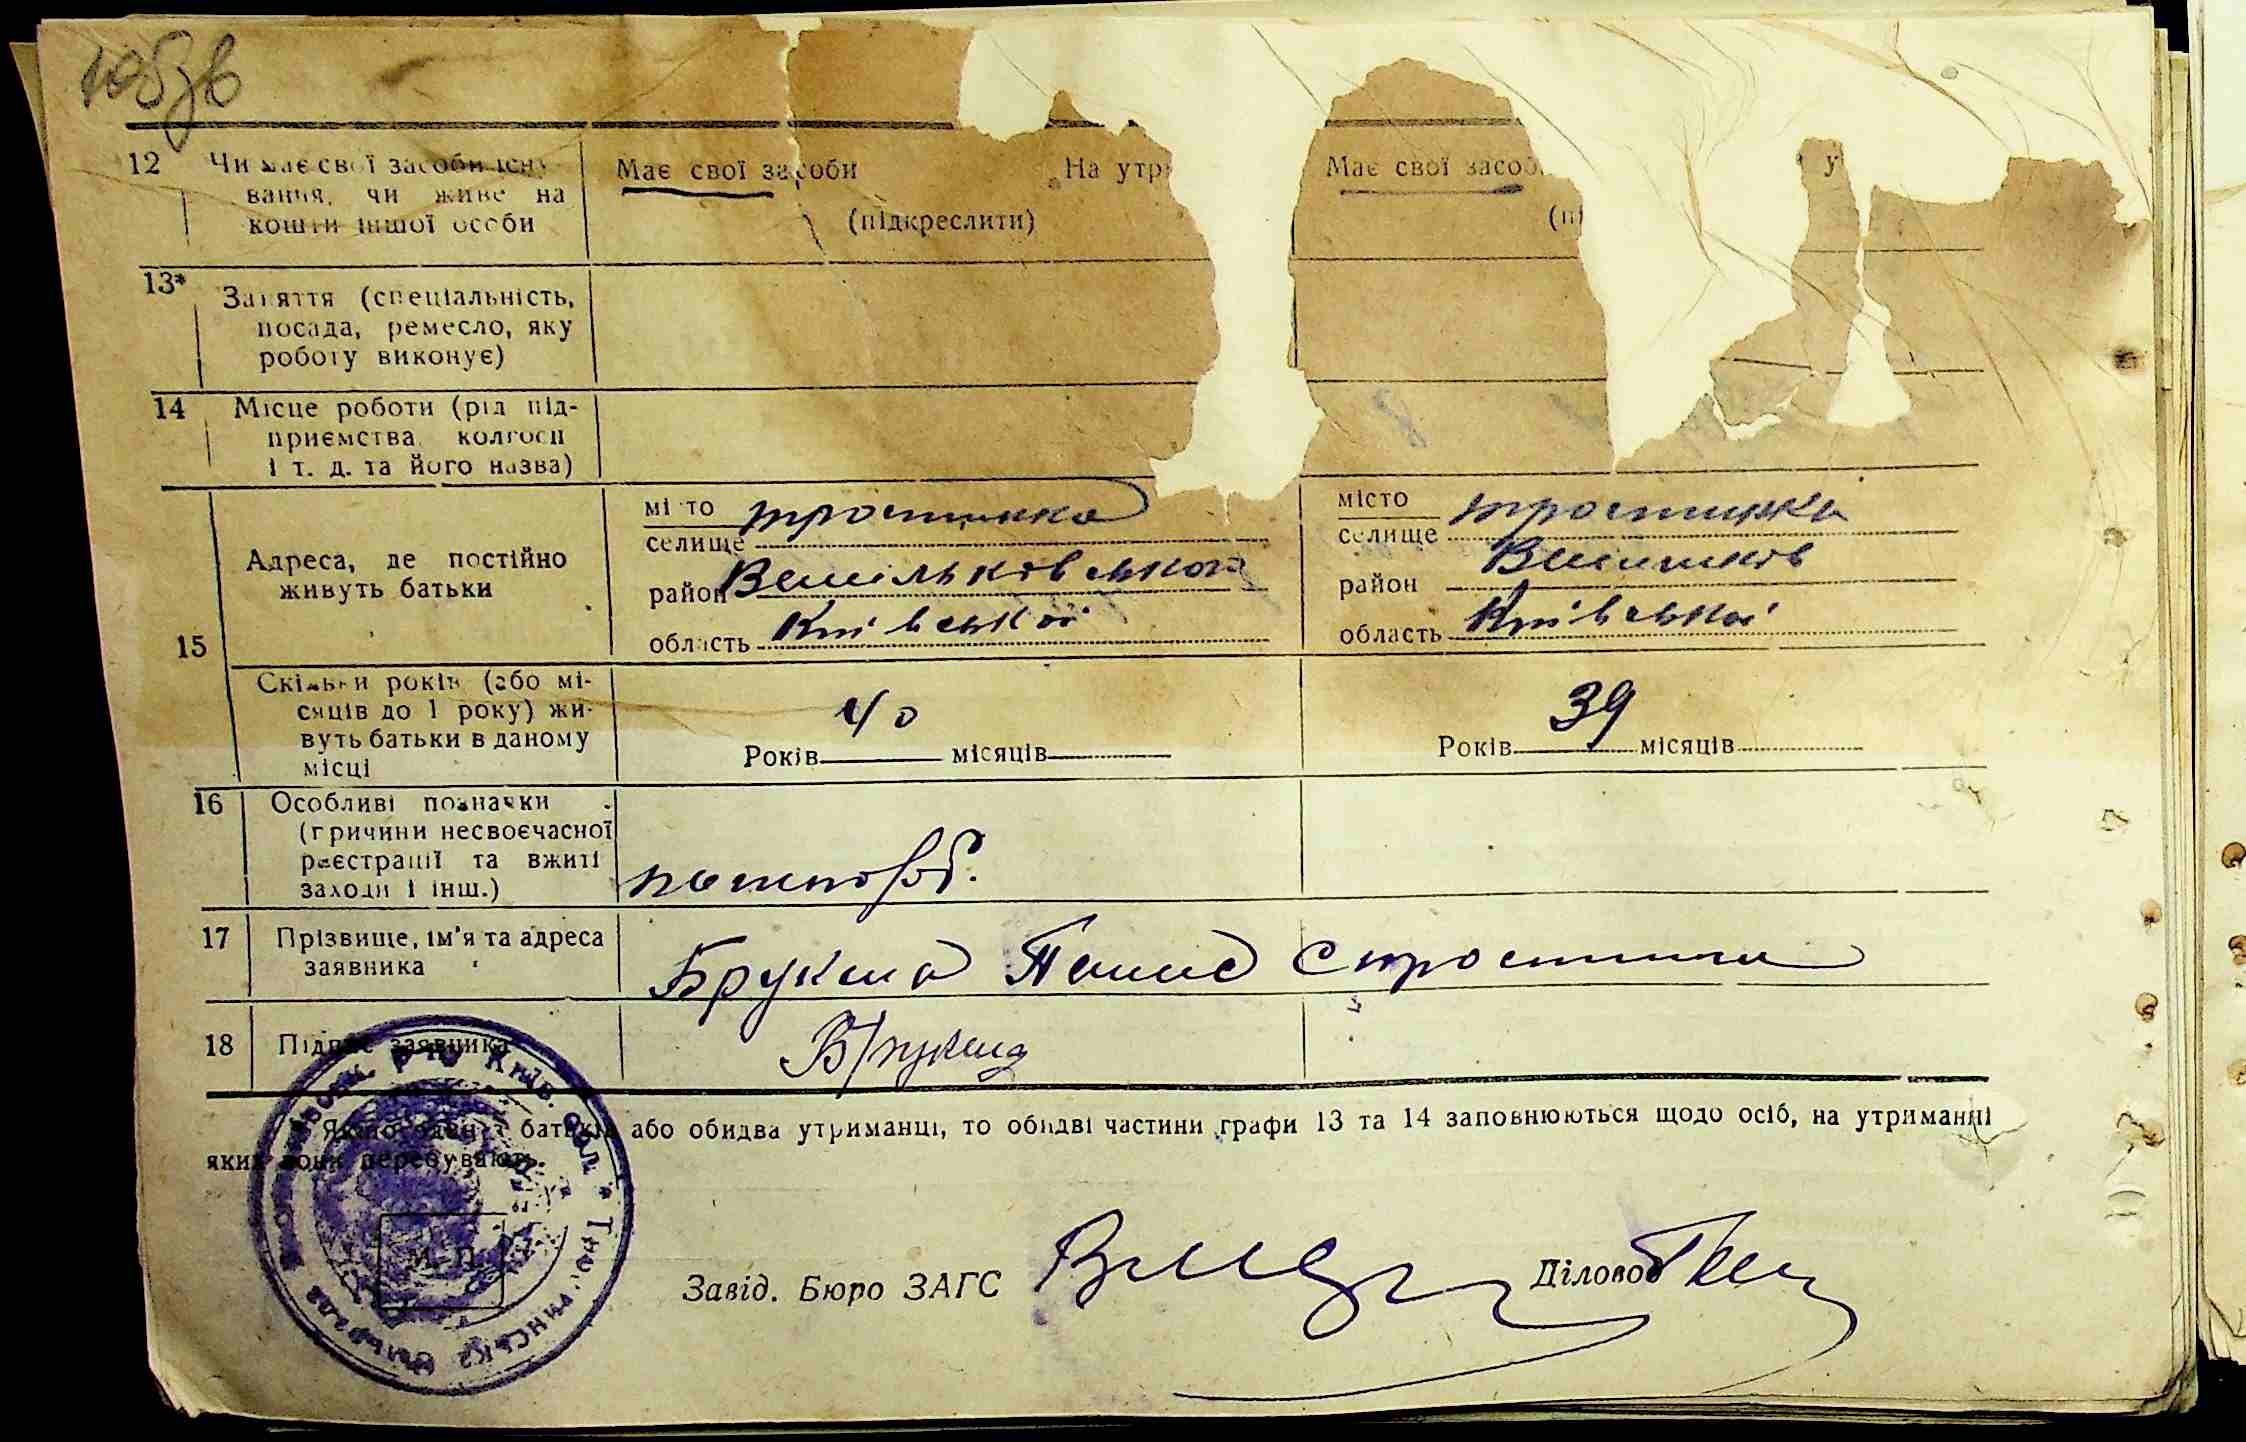 12 Чи має свої засоби існу-
вання, чи живе на
кошти іншої особи
Має свої засоби На утр
(підкреслити)
Має свої засоб у
(пі
13* Заняття (спеціальність,
посада, ремесло, яку
роботу виконує)
14 Місце роботи (рід під-
приємства, колгосп
і т. д. та його назва)
15 Адреса, де постійно
живуть батьки
місто Тростинка
селище
район Васильковського
область Київської
місто Тростинка
селище
район Васильков
область Київської
Скільки років (або мі-
сяців до 1 року) жи-
вуть батьки в даному
місці
40
Років місяців
39
Років місяців
16 Особливі позначки
(причини несвоєчасної
реєстрації та вжиті
заходи і інш.)
17 Прізвище, ім'я та адреса
заявника
18 Підпис заявника
* Якщо один з батьків або обидва утриманці, то обидві частини графи 13 та 14 заповнюються щодо осіб, на утриманні
яких вони перебувають.
М. П.
Завід. Бюро ЗАГС Діловод